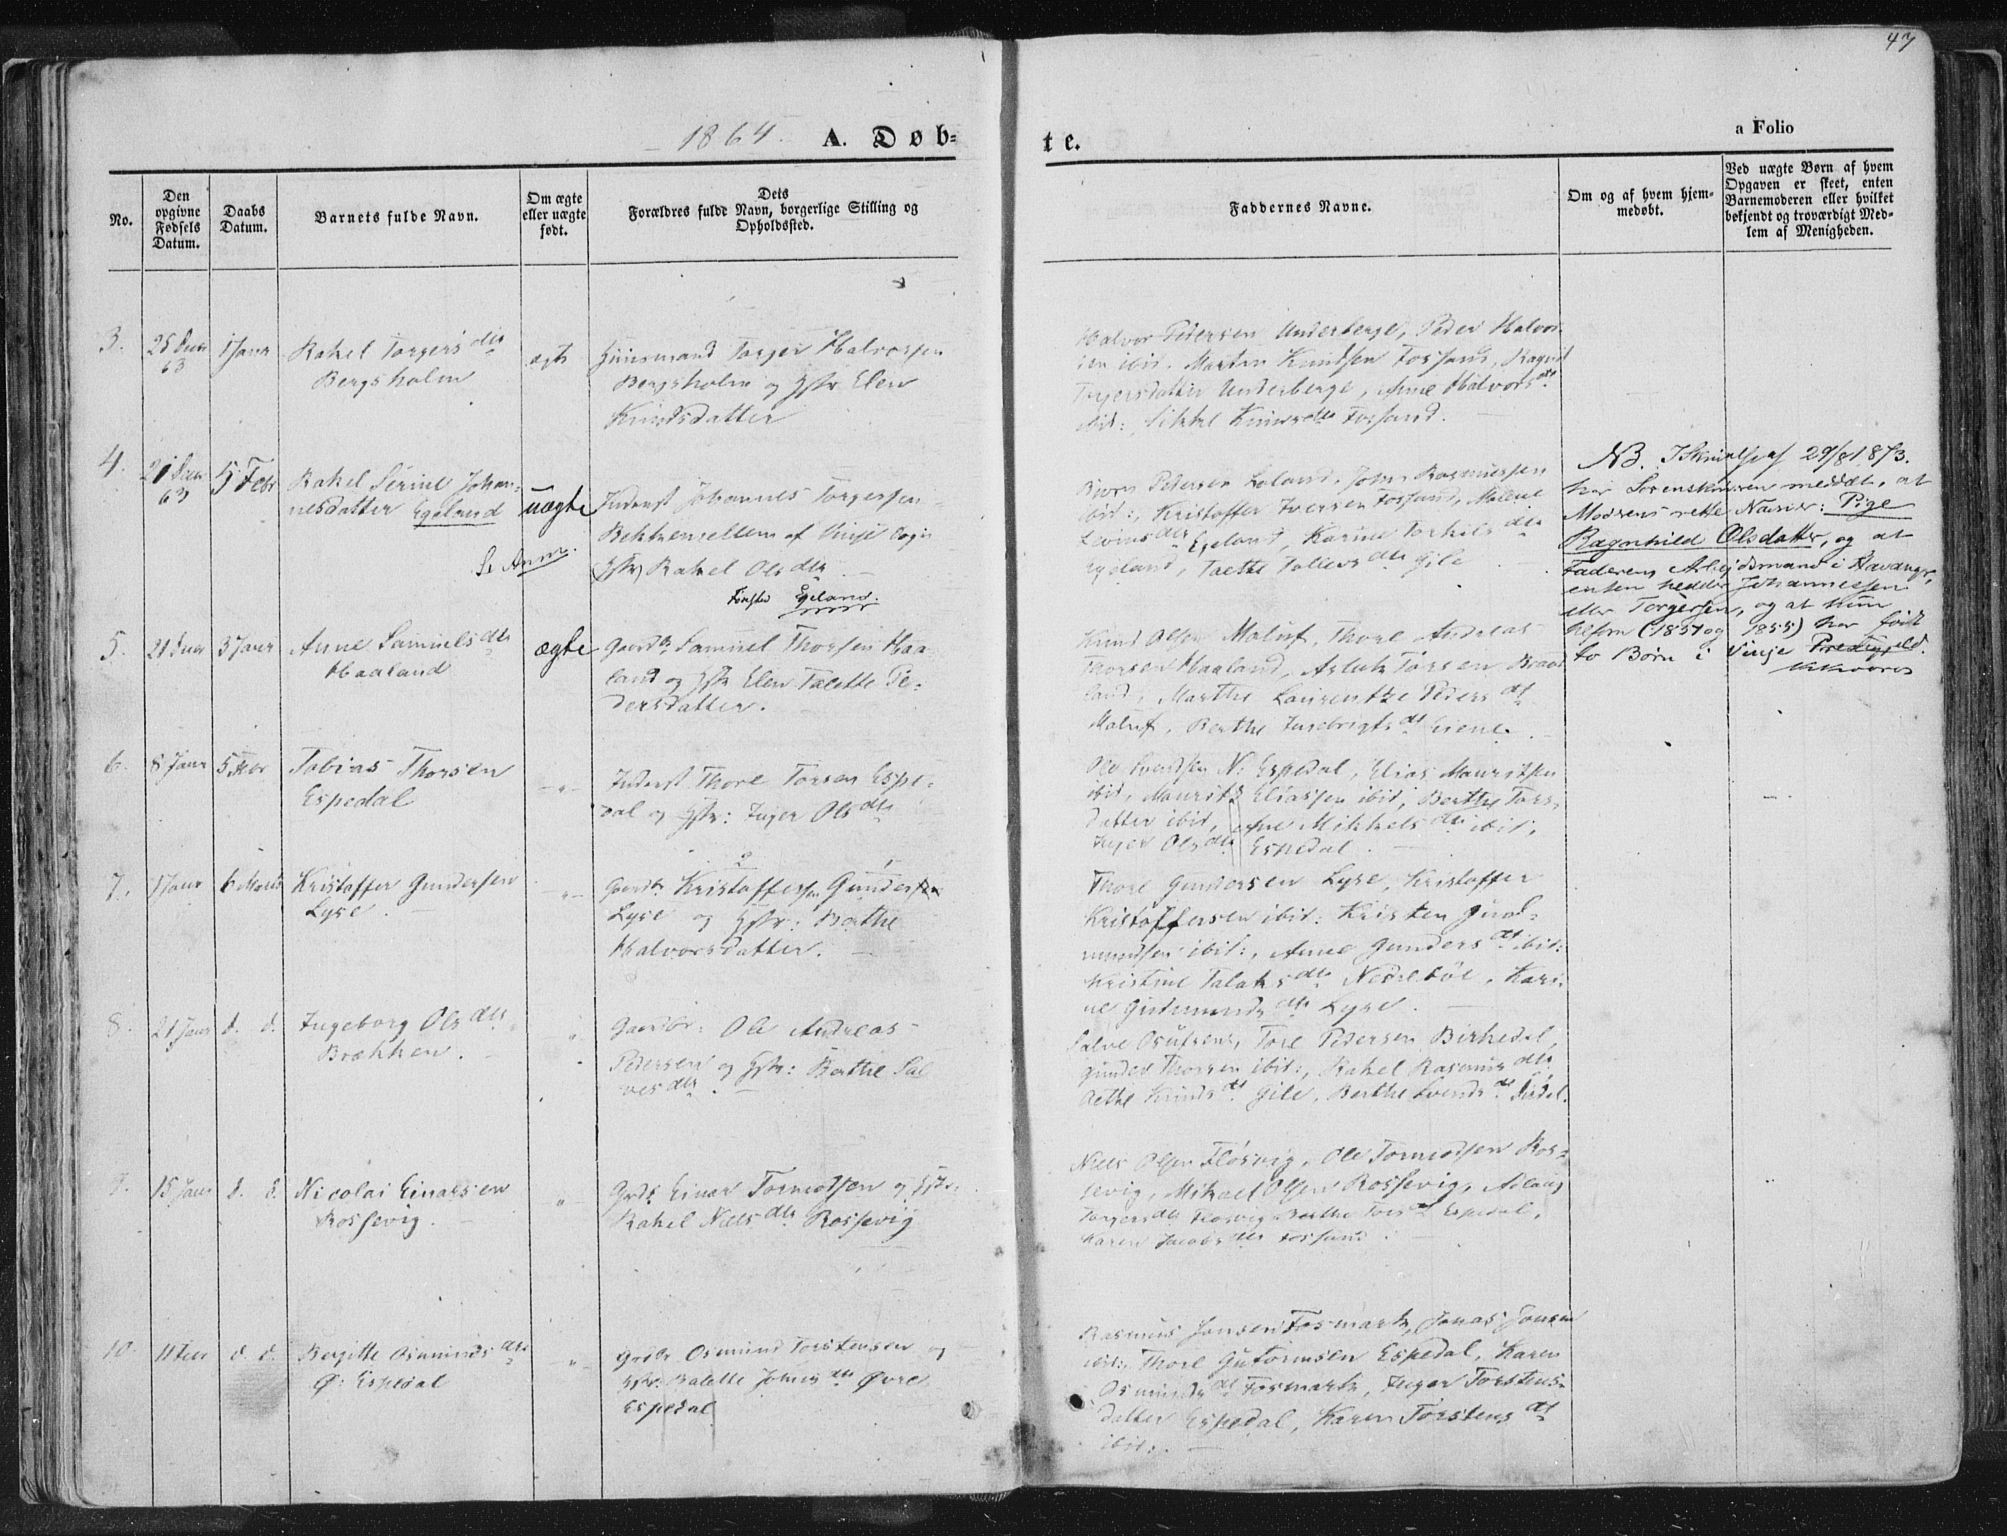 47
1864. A. Døb=
te.
a Folio
No.
Den
opgivne
Fødsels
Datum.
Daabs
Datum.
Barnets fulde Navn.
Om ægte
eller uægte
født.
Dets
Forældres fulde Navn, borgerlige Stilling og
Opholdssted.
Faddernes Navne.
Om og af hvem hjem-
medøbt.
Ved uægte Børn af hvem
Opgaven er skeet, enten
Barnemoderen eller hvilket
bekjendt og troværdigt Med-
lem af Menigheden.
3.
63
1 Janr
Rakel Torgersdtr
Bergsholm
ægte
Huusmand Torger Halvorsen
Bergsholm og Hstr Elen
Knudsdatter
Halvor Pedersen Underberge, Peder Halvor
sen ibid. Martin Knudsen Fossand, Ragnil
Torgersdatter Underberge, Anne Halvorsdtr
ibid: Sikke Knudsdtr Fossand.
4.
21
63
5 Febr
Rakel Serine Johan=
nesdatter Egeland
Se Anm.
uægte
Inderst Johannes Torgersen
Bekkensellem af Vinje Sogn
Hstr Rakel Olsdtr
Egeland.
Bjørn Pedersen Loland, John Rasmussen
ibid:, Kristoffer Iversen Fossand, Malene
Egeland, Karine Torkilsdtr
Egeland, Taette Tollevsdtr Gile
NB. I Skrivelse af 29/8 1873.
har Sorenskriveren meddelt, at
Moderens rette Navn er: Pige
Ragnhild Olsdatter, og at
Faderen, Arbejdsmand i Stavanger,
enten hedder Johannessen
eller Torgersen, og at hun
(1851 og 1855) har født
to Børn i Vinje Prestegjeld.
5.
21
3 Janr
Anne Samuelsdtr
Haaland
ægte
Gaardbr Samuel Thorsen Haa=
land og Hstr Elen Talette Pe=
dersdatter.
Knud Olsen Maluf, Thore Andreas
Thorsen Haaland, Aslak Torsen Braa
land, Marthe Laurentze Pedersdtr
Maluf, Berthe Ingebrigtsdtr Eiene.
6.
8 Janr
5 Febr
Tobias Thorsen
Espedal
-"-
Inderst Thore Torsen Espe=
dal og Hstr: Inger Olsdtr
Ole Svendsen N: Espedal, Elias Mauritsen
ibid, Maurits Eliassen ibid, Berthe Tors
datter ibid, Ane Mikkelsdtr ibid,
Inger Olsdtr Espedal.
7.
1 Janr
6 Marts
Kristoffer Gundersen
Lyse.
-"-
2 1
Gaardbr Kristoffersen Gundersen
Lyse og Hstr: Berthe
Halvorsdatter.
Thore Gundersen Lyse, Kristoffer
Kristoffersen ibid: Kristen Gud=
mundsen ibid:, Anne Gundersdtr ibid:
Kristine Talaksdtr Nedrebøe, Kari=
ne Gudmundsdtr Lyse.
8.
21 Janr
d. d.
Ingeborg Olsdtr
Brækken.
"
Gaardbr: Ole Andreas
Pedersen og Hstr: Berthe Sal
vesdtr.
Salve Osufsen, Tore Pedersen Birkedal,
Gunder Thorsen ibid:, Rakel Rasmusdtr
Aette Knudsdtr Gile, Berthe Svendsdtr
9.
15 Janr
d. d.
Nicolai Einarsen
Rossevig.
"
Grdbr Einar Tormodsen og Hstr:
Rakel Nielsdtr Rossevig
Niels Olsen Fløsvig, Ole Tormodsen Ros=
sevig, Mikael Olsen Rossevig,
Torgersdtr Fløsvig Berthe Torsdtr Espedal,
Karen Jacobsdtr Fossand.
10.
d. d.
Bergitte Osmundsdtr
Ø: Espedal
"
Grdbr Osmund Torstensen og
Hstr: Balette Johnsdtr Øvre
Espedal
Rasmus Jonsen Fosmark, Jonas Jonsen
ibid:, Thore Gutormsen Espedal, Karen
Osmundsdtr Fosmark, Inger Torstens=
datter Espedal, Karen Torstensdtr
ibid:.